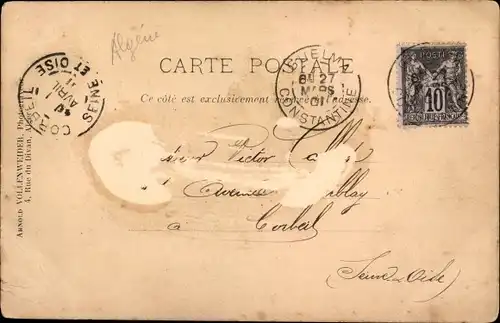 Algérie
CARTE POSTALE
Ce côté est exclusivement réservé à l'adresse.
GUELMA
27
MARS
01
CONSTANTINE
POSTES
10
CORBEIL
AVRIL
SEINE ET OISE
ARNOLD VOLLENWEIDER, Phot.
4, Rue du Divan, Alger
Victor
Avenue
à
Corbeil
(Seine & Oise)